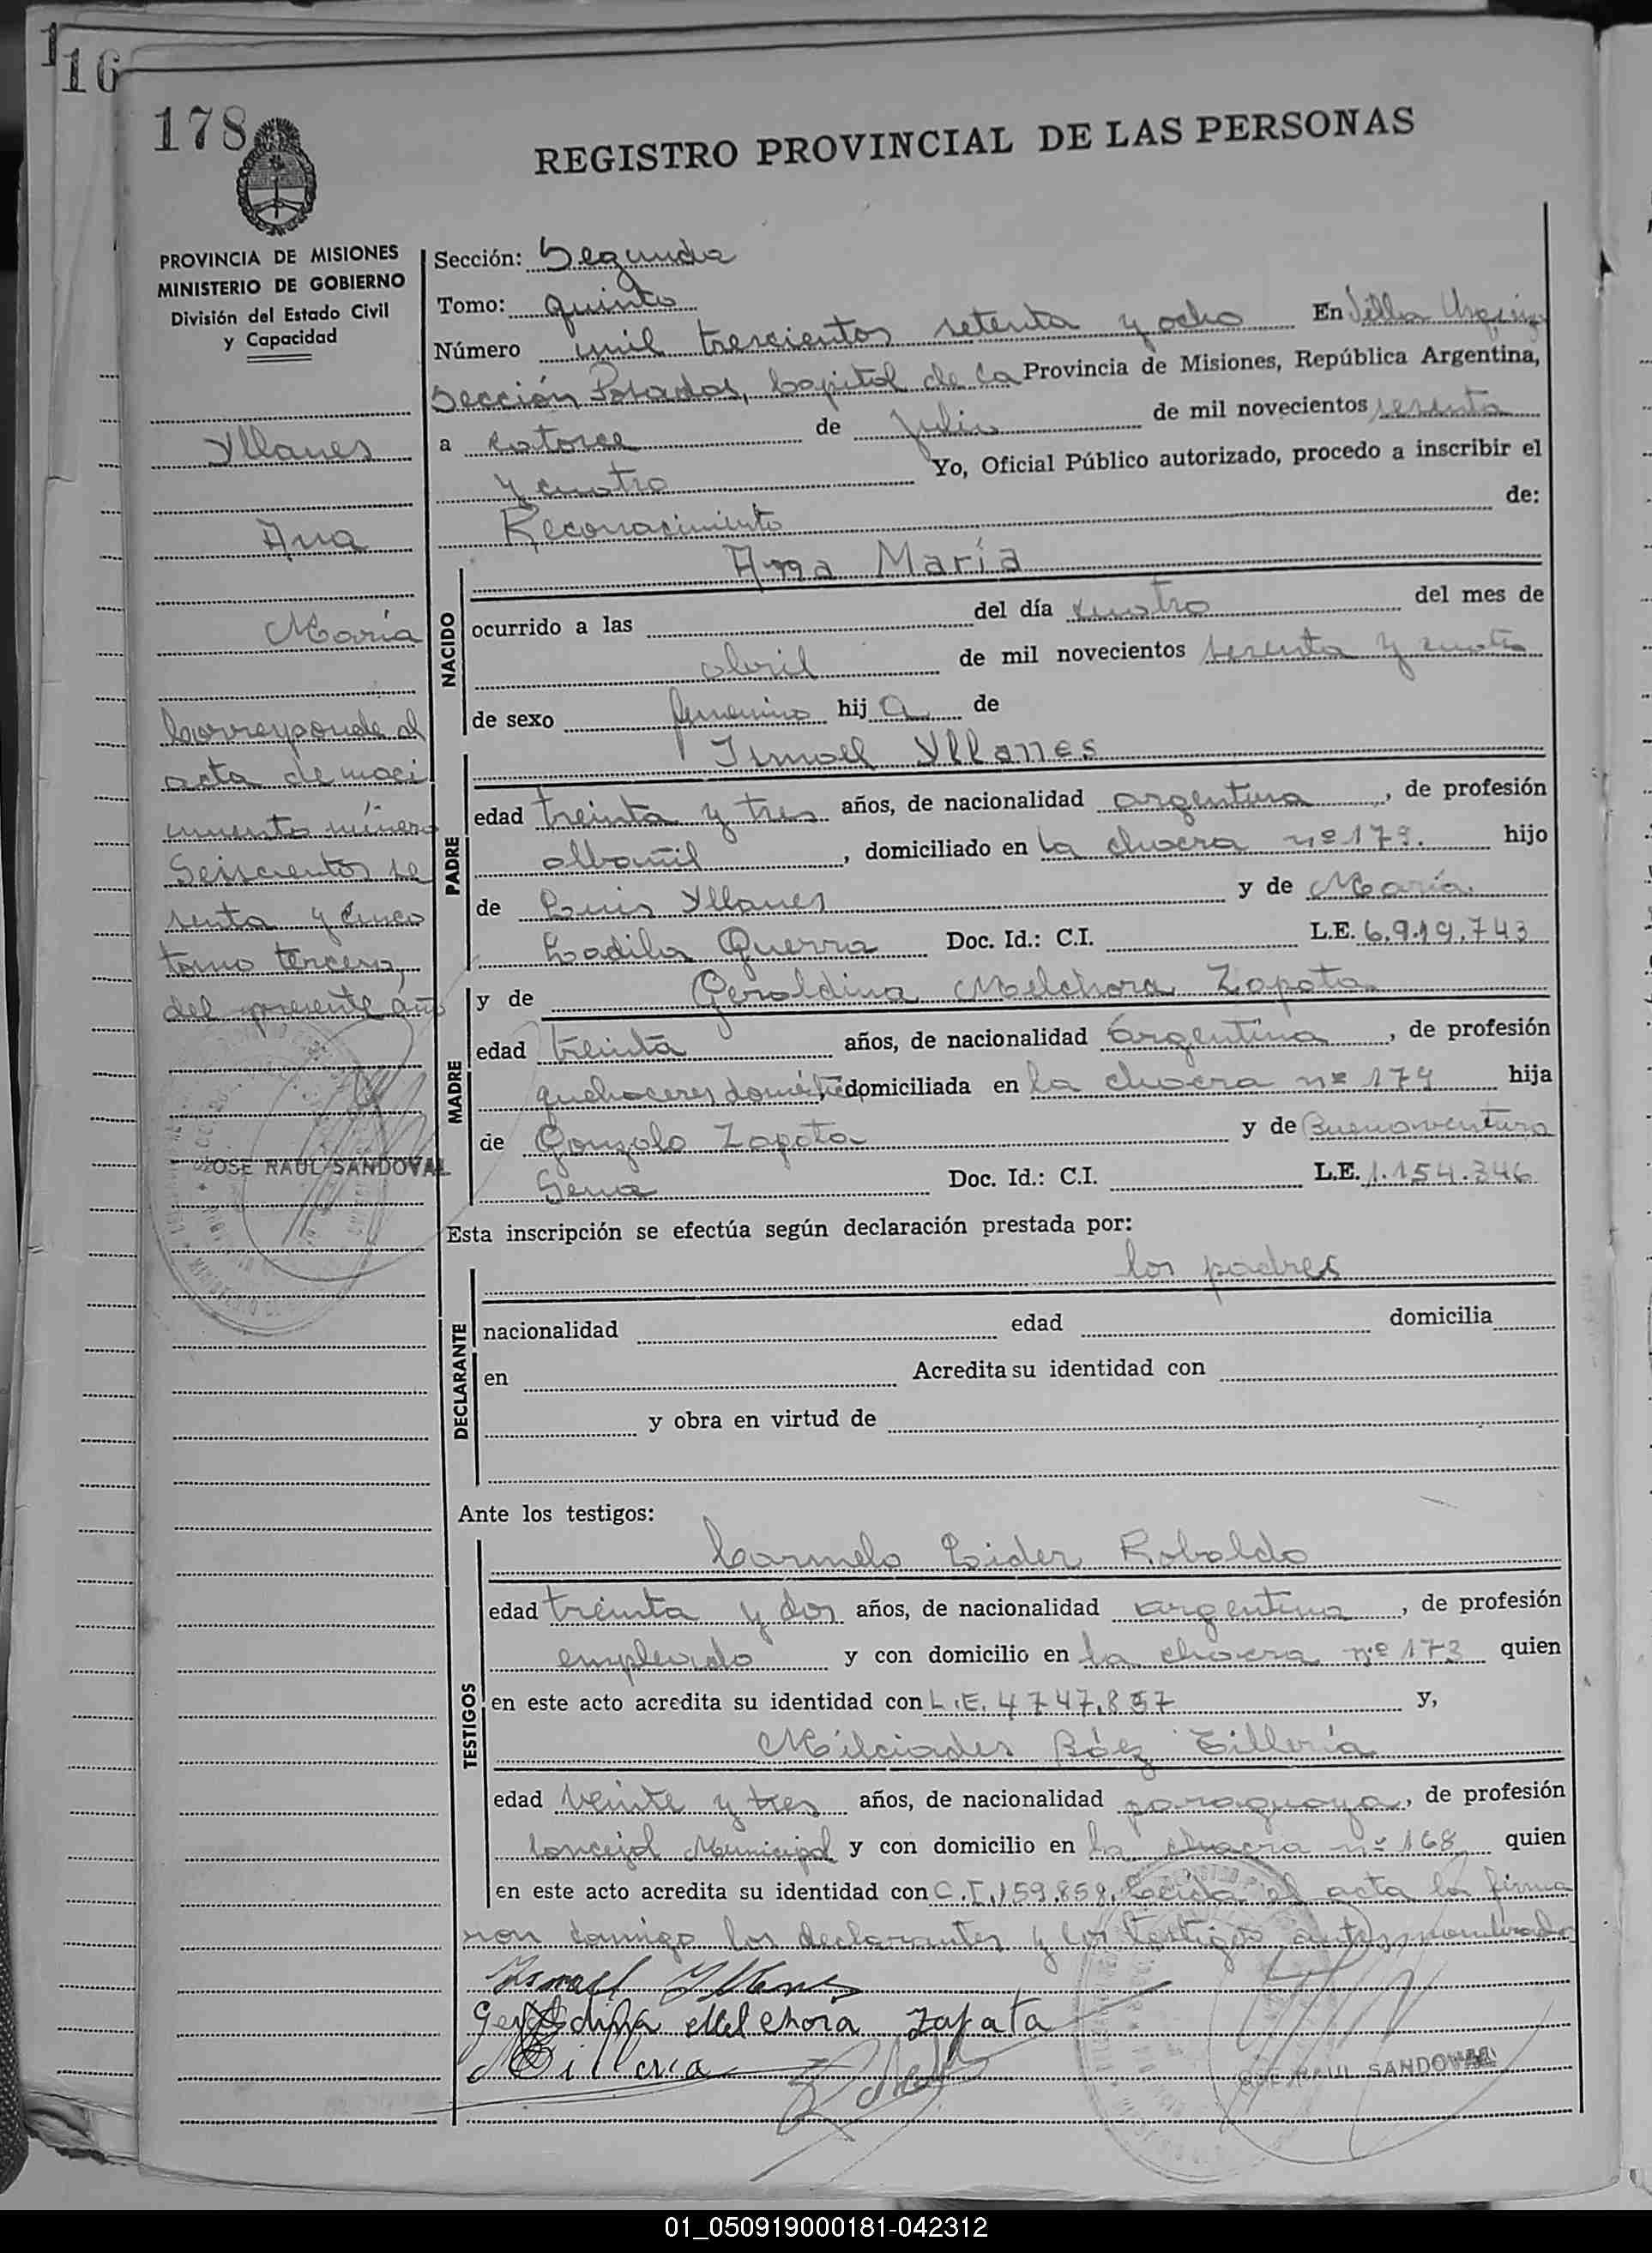 116
178
REGISTRO PROVINCIAL DE LAS PERSONAS
PROVINCIA DE MISIONES
MINISTERIO DE GOBIERNO
División del Estado Civil
y Capacidad
Yllanes
Ana
María
Corresponde al
acta de naci
miento número
Seiscientos se
senta y cinco
tomo tercero,
del presente año
JOSE RAUL SANDOVAL
Sección: Segunda
Tomo: quinto
Número mil trescientos setenta y ocho En Villa Urquiza
Sección Posadas, Capital de la Provincia de Misiones, República Argentina,
a catorce de Julio de mil novecientos sesenta
y cuatro Yo, Oficial Público autorizado, procedo a inscribir el
Reconocimiento de:
NACIDO
Ana María
ocurrido a las del día cuatro del mes de
abril de mil novecientos sesenta y cuatro
de sexo femenino hija de
PADRE
Ismael Yllanes
edad treinta y tres años, de nacionalidad argentina, de profesión
albañil, domiciliado en la chacra nº 179. hijo
de Luis Yllanes y de María
Ladila Querra Doc. Id.: C.I. L.E. 6.919.743
MADRE
y de Geraldina Melchora Zapata
edad treinta años, de nacionalidad argentina, de profesión
quehaceres domésticos domiciliada en la chacra nº 179 hija
de Gonzalo Zapata y de Buenaventura
Sena Doc. Id.: C.I. L.E. 1.154.346
Esta inscripción se efectúa según declaración prestada por:
DECLARANTE
los padres
nacionalidad edad domicilia
en Acredita su identidad con
y obra en virtud de
Ante los testigos:
TESTIGOS
Carmelo Lider Robaldo
edad treinta y dos años, de nacionalidad argentina, de profesión
empleado y con domicilio en la chacra nº 173 quien
en este acto acredita su identidad con L.E. 4.747.857 y,
Milciades Báez Tillería
edad veinte y tres años, de nacionalidad paraguaya, de profesión
Concejal Municipal y con domicilio en la chacra nº 168 quien
en este acto acredita su identidad con C.I. 159.858. Leída el acta la firma
ron conmigo los declarantes y los testigos antes nombrados
Ismael Yllanes
Geraldina Melchora Zapata
Tilleria
JOSE RAUL SANDOVAL
01_050919000181-042312